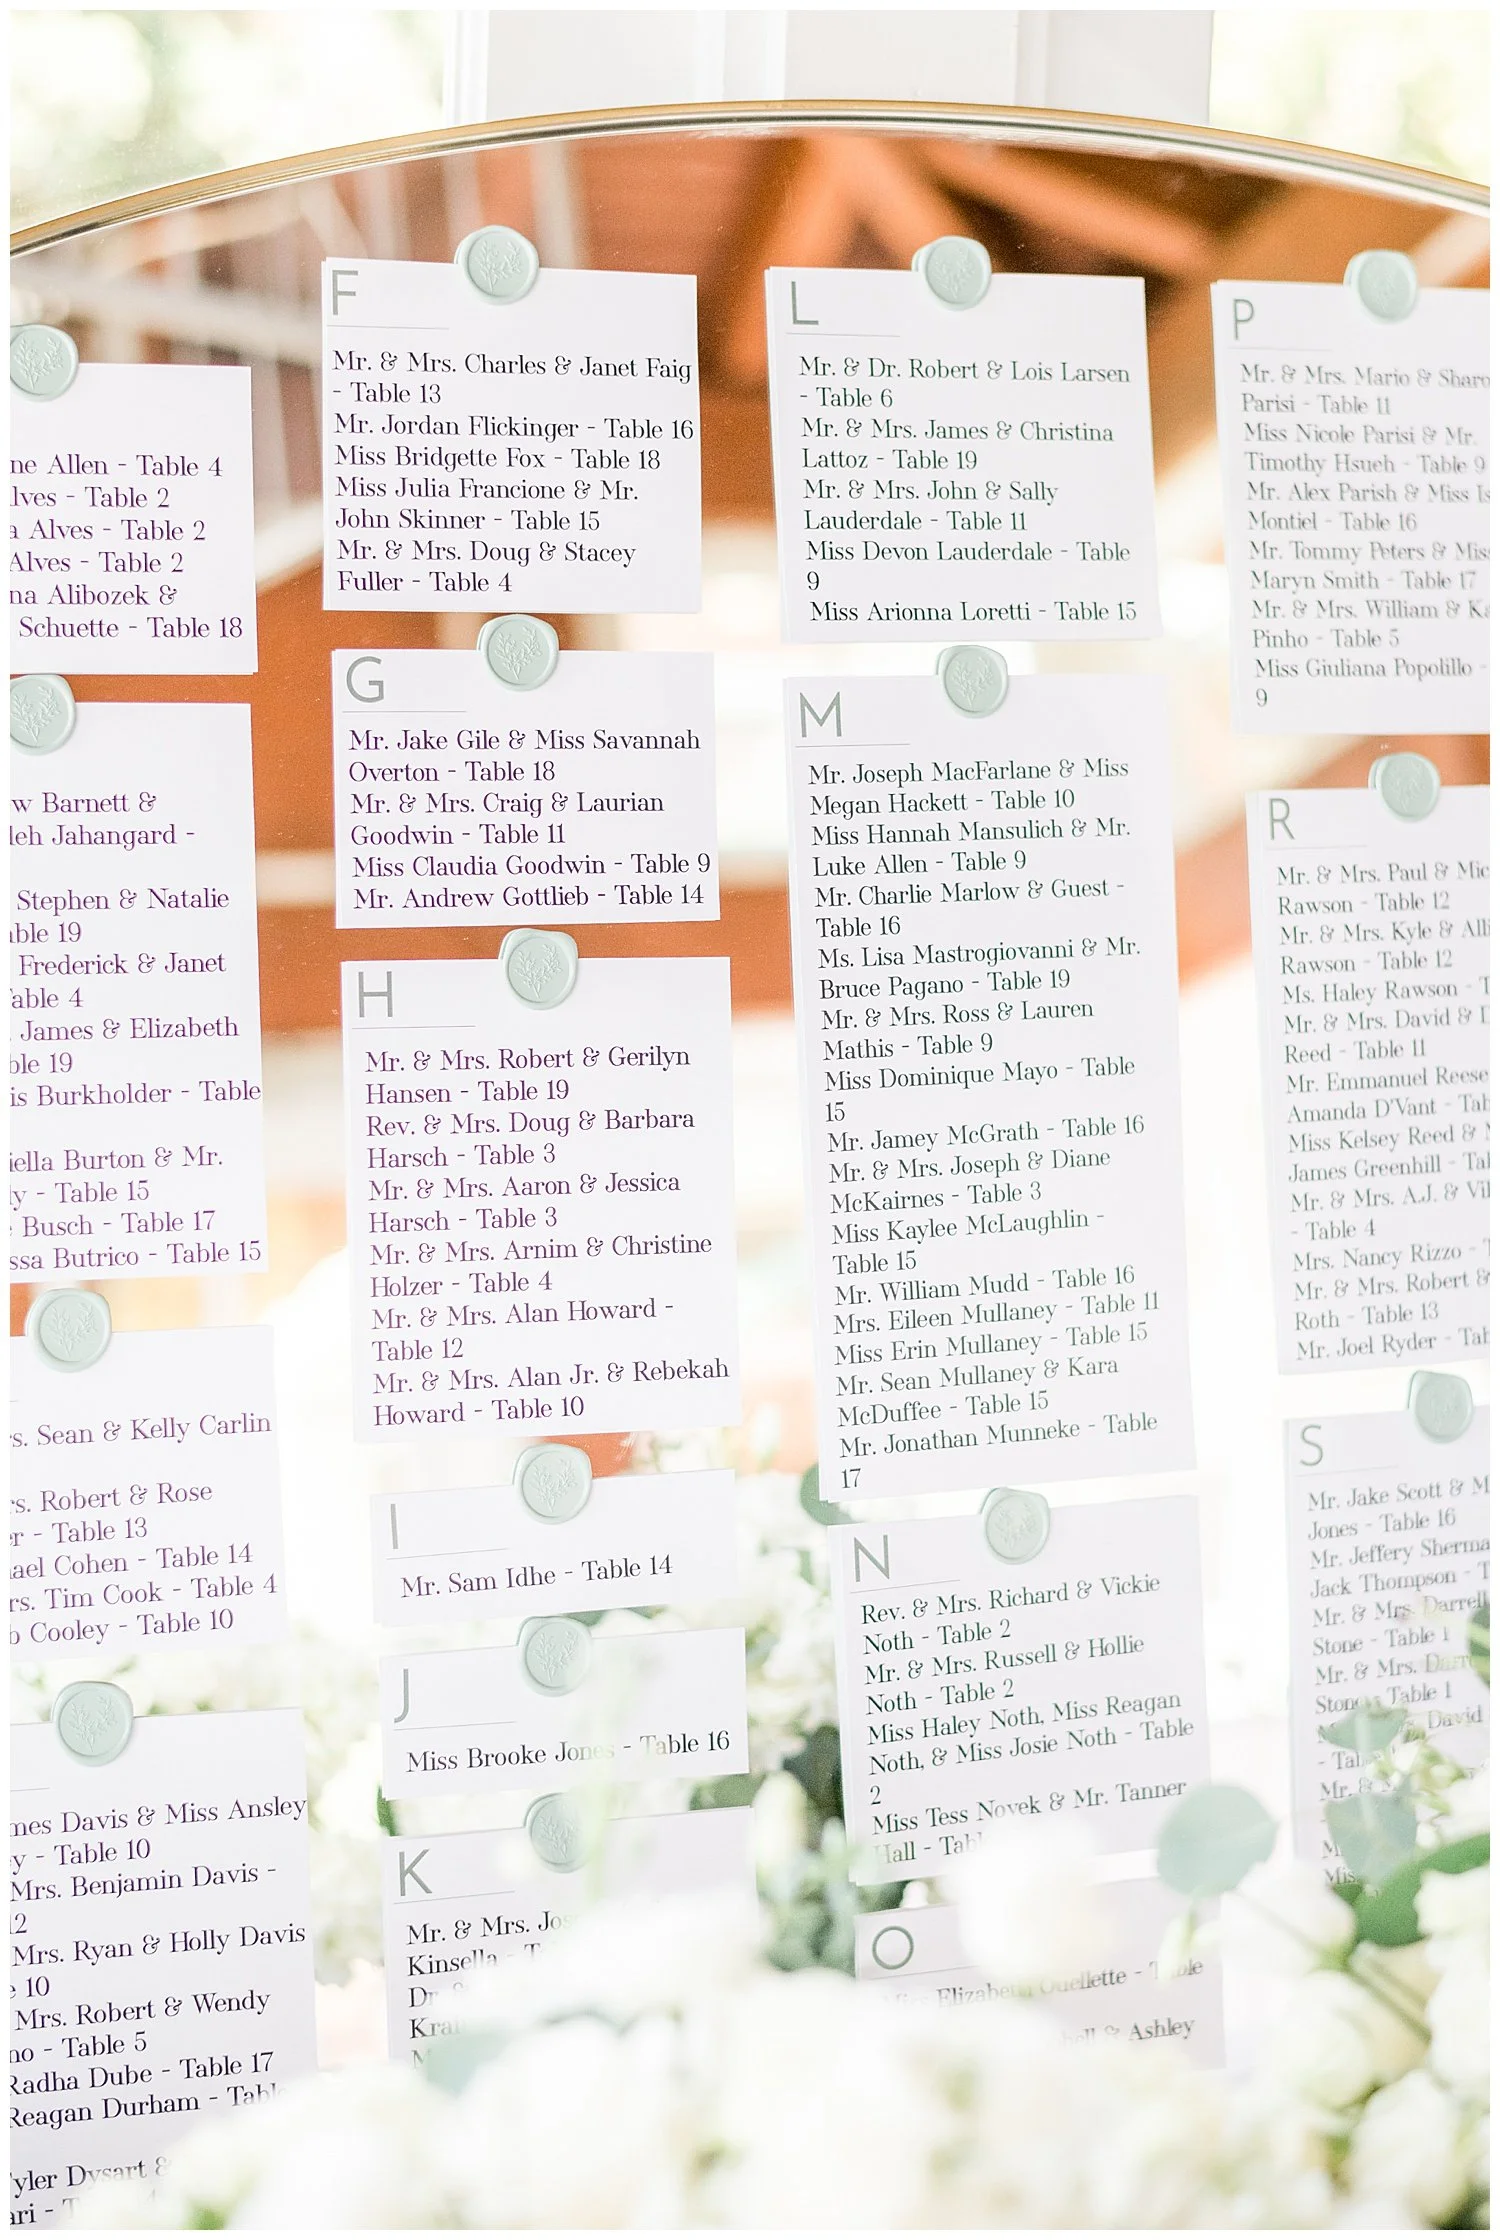 ne Allen - Table 4
lves - Table 2
a Alves - Table 2
Alves - Table 2
na Alibozek &
Schuette - Table 18
w Barnett &
leh Jahangard -
Stephen & Natalie
ble 19
Frederick & Janet
able 4
James & Elizabeth
ble 19
is Burkholder - Table
iella Burton & Mr.
y - Table 15
Busch - Table 17
ssa Butrico - Table 15
s. Sean & Kelly Carlin
rs. Robert & Rose
er - Table 13
ael Cohen - Table 14
rs. Tim Cook - Table 4
b Cooley - Table 10
mes Davis & Miss Ansley
y - Table 10
Mrs. Benjamin Davis -
12
Mrs. Ryan & Holly Davis
e 10
Mrs. Robert & Wendy
no - Table 5
Radha Dube - Table 17
Reagan Durham - Tabl
yler Dysart &
ari -
F
Mr. & Mrs. Charles & Janet Faig
- Table 13
Mr. Jordan Flickinger - Table 16
Miss Bridgette Fox - Table 18
Miss Julia Francione & Mr.
John Skinner - Table 15
Mr. & Mrs. Doug & Stacey
Fuller - Table 4
G
Mr. Jake Gile & Miss Savannah
Overton - Table 18
Mr. & Mrs. Craig & Laurian
Goodwin - Table 11
Miss Claudia Goodwin - Table 9
Mr. Andrew Gottlieb - Table 14
H
Mr. & Mrs. Robert & Gerilyn
Hansen - Table 19
Rev. & Mrs. Doug & Barbara
Harsch - Table 3
Mr. & Mrs. Aaron & Jessica
Harsch - Table 3
Mr. & Mrs. Arnim & Christine
Holzer - Table 4
Mr. & Mrs. Alan Howard -
Table 12
Mr. & Mrs. Alan Jr. & Rebekah
Howard - Table 10
I
Mr. Sam Idhe - Table 14
J
Miss Brooke Jones - Table 16
K
Mr. & Mrs. Jos
Kinsella - T
Dr. &
Kra
M
L
Mr. & Dr. Robert & Lois Larsen
- Table 6
Mr. & Mrs. James & Christina
Lattoz - Table 19
Mr. & Mrs. John & Sally
Lauderdale - Table 11
Miss Devon Lauderdale - Table
9
Miss Arionna Loretti - Table 15
M
Mr. Joseph MacFarlane & Miss
Megan Hackett - Table 10
Miss Hannah Mansulich & Mr.
Luke Allen - Table 9
Mr. Charlie Marlow & Guest -
Table 16
Ms. Lisa Mastrogiovanni & Mr.
Bruce Pagano - Table 19
Mr. & Mrs. Ross & Lauren
Mathis - Table 9
Miss Dominique Mayo - Table
15
Mr. Jamey McGrath - Table 16
Mr. & Mrs. Joseph & Diane
McKairnes - Table 3
Miss Kaylee McLaughlin -
Table 15
Mr. William Mudd - Table 16
Mrs. Eileen Mullaney - Table 11
Miss Erin Mullaney - Table 15
Mr. Sean Mullaney & Kara
McDuffee - Table 15
Mr. Jonathan Munneke - Table
17
N
Rev. & Mrs. Richard & Vickie
Noth - Table 2
Mr. & Mrs. Russell & Hollie
Noth - Table 2
Miss Haley Noth, Miss Reagan
Noth, & Miss Josie Noth - Table
2
Miss Tess Novek & Mr. Tanner
Hall - Tabl
O
Elizabeth Ouellette - Table
& Ashley
P
Mr. & Mrs. Mario & Sharo
Parisi - Table 11
Miss Nicole Parisi & Mr.
Timothy Hsueh - Table 9
Mr. Alex Parish & Miss Is
Montiel - Table 16
Mr. Tommy Peters & Miss
Maryn Smith - Table 17
Mr. & Mrs. William & Ka
Pinho - Table 5
Miss Giuliana Popolillo -
9
R
Mr. & Mrs. Paul & Mic
Rawson - Table 12
Mr. & Mrs. Kyle & Alli
Rawson - Table 12
Ms. Haley Rawson - T
Mr. & Mrs. David & D
Reed - Table 11
Mr. Emmanuel Reese
Amanda D'Vant - Tab
Miss Kelsey Reed & M
James Greenhill - Tab
Mr. & Mrs. A.J. & Vil
- Table 4
Mrs. Nancy Rizzo - T
Mr. & Mrs. Robert &
Roth - Table 13
Mr. Joel Ryder - Tab
S
Mr. Jake Scott & M
Jones - Table 16
Mr. Jeffery Sherma
Jack Thompson - T
Mr. & Mrs. Darrell
Stone - Table 1
Mr. & Mrs.
Stone - Table 1
David
- Tab
Mr. &
Mis